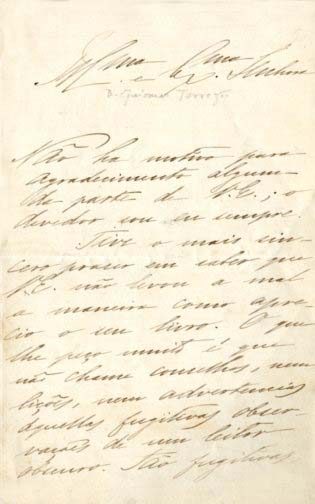 Illma e Exma Senhora
D. Guiomar Torrezão
Não ha motivo para
agradecimento algum
da parte de V.E.; o
devedor sou eu sempre.
Tive o mais sin-
cero prazer em saber que
V.E. não levou a mal
a maneira como apre-
cio o seu livro. O que
lhe peço muito é que
não chame conselhos, nem
lições, nem advertencias
áquellas fugitivas obser-
vações de um leitor
obscuro. São fugitivas